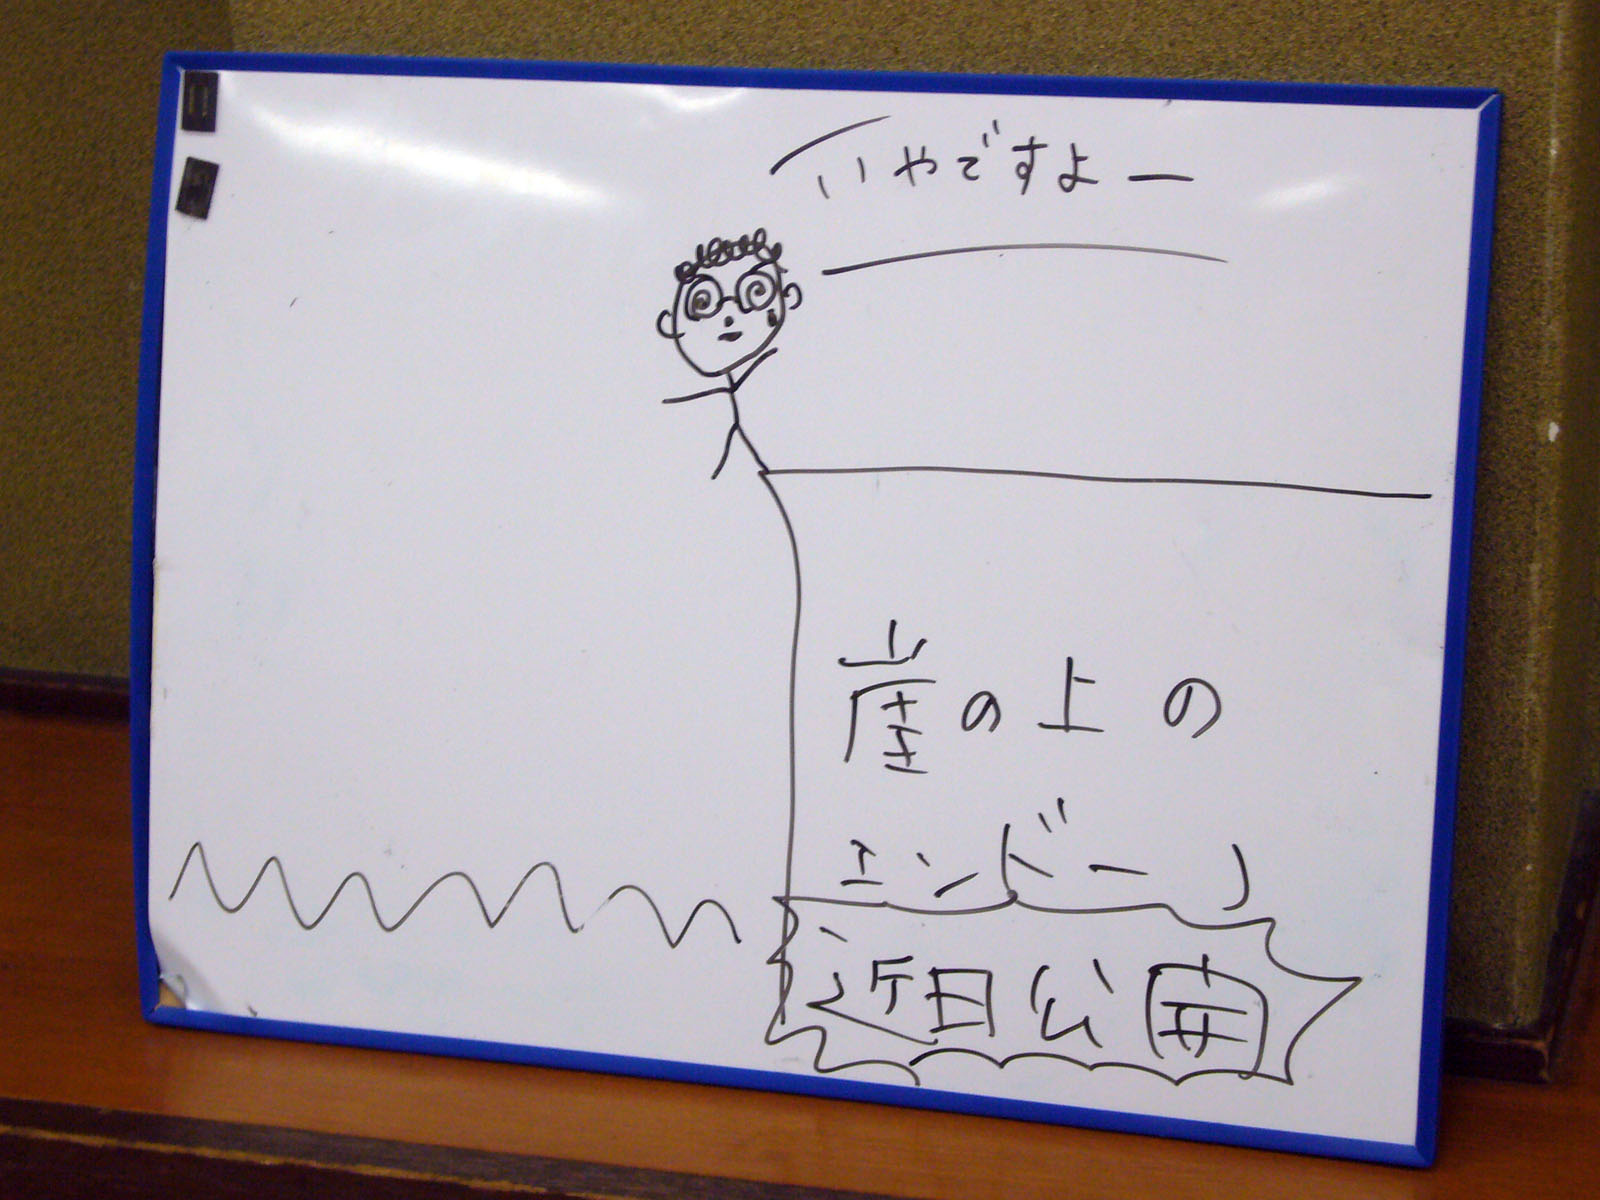 いやですよー
崖の上の
エンドーノ
近日公開